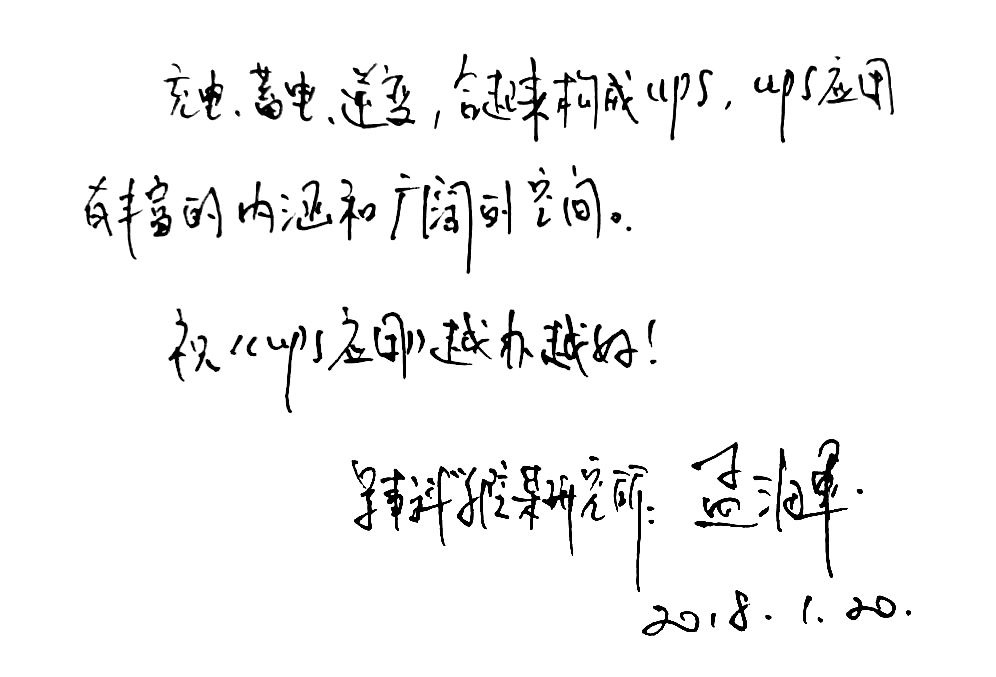 充电、蓄电、逆变，合起来构成ups，ups应用
有丰富的内涵和广阔的空间。
祝《ups应用》越办越好！
军事科学院某研究所：孟润军．
2018．1．20．